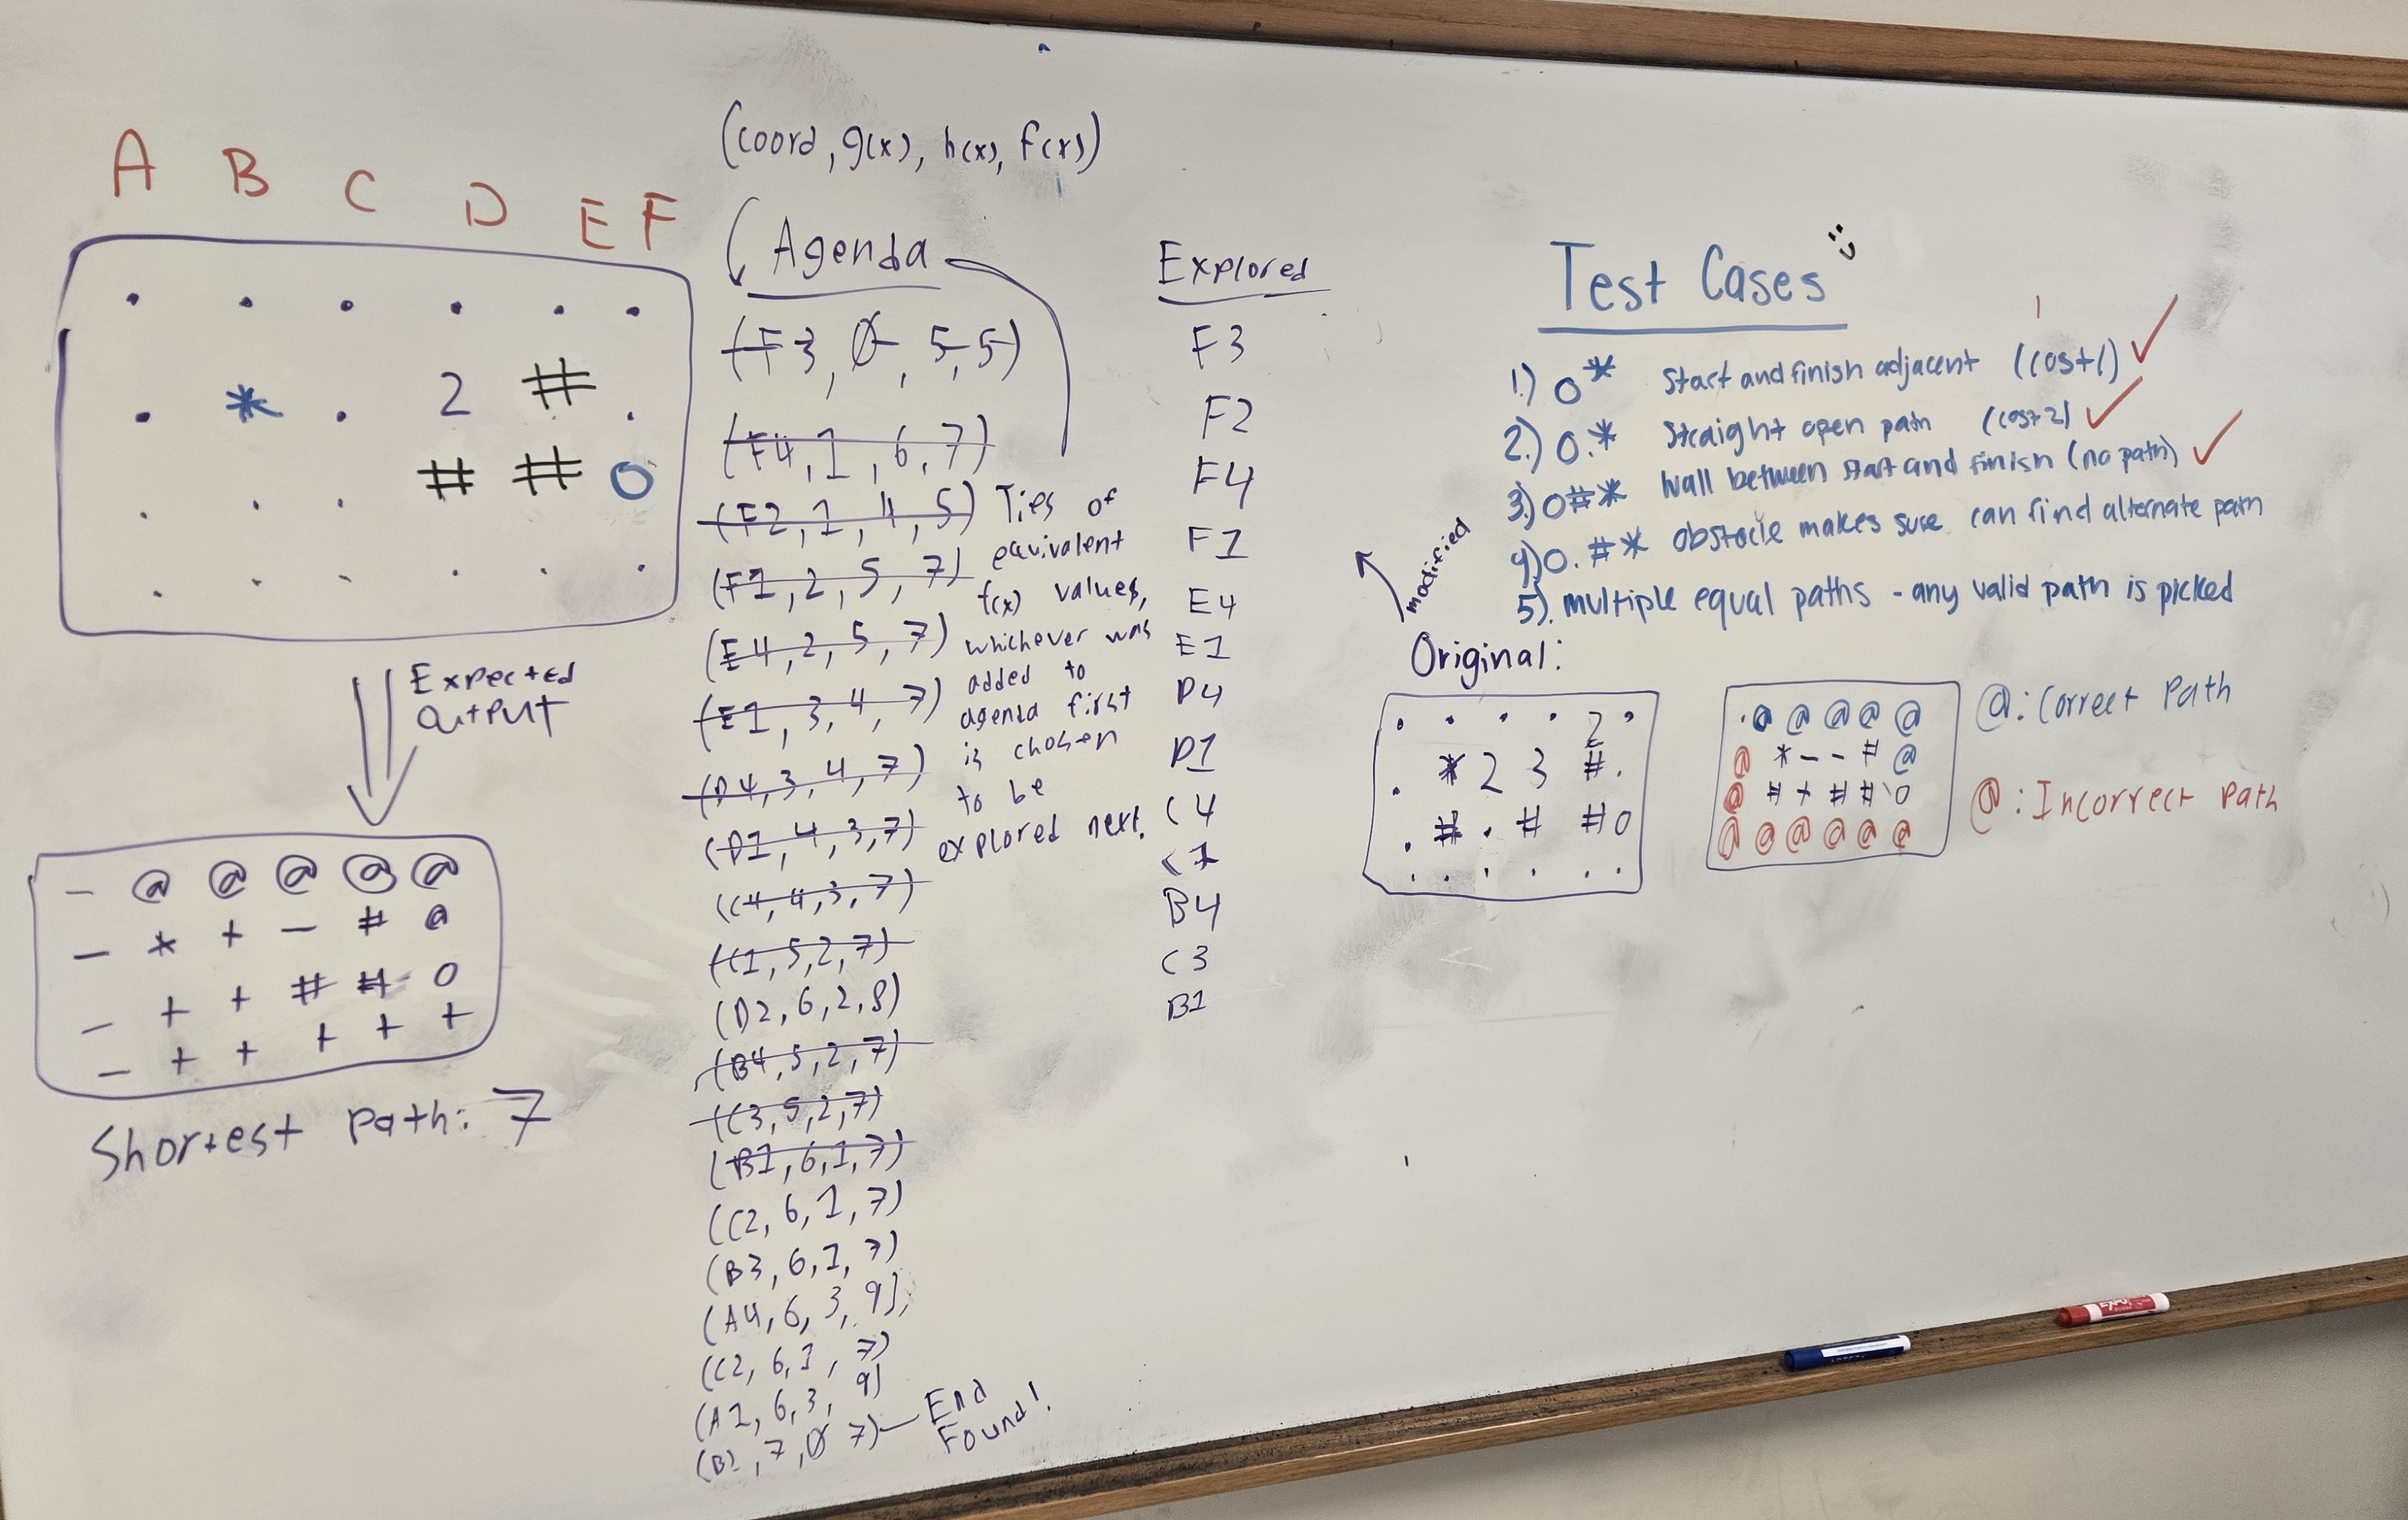 A B C D E F
. . . . . .
. * . 2 # .
. . . # # O
. . . . . .
Expected
output
- @ @ @ @ @
- * + - # @
- + + # # O
- + + + + +
Shortest path: 7
(coord, g(x), h(x), f(x))
Agenda
(F3, 0, 5, 5)
(F4, 1, 6, 7)
(F2, 1, 4, 5)
(F1, 2, 5, 7)
(E4, 2, 5, 7)
(E1, 3, 4, 7)
(D4, 3, 4, 7)
(D1, 4, 3, 7)
(C4, 4, 3, 7)
(C1, 5, 2, 7)
(D2, 6, 2, 8)
(B4, 5, 2, 7)
(C3, 5, 2, 7)
(B1, 6, 1, 7)
(C2, 6, 1, 7)
(B3, 6, 1, 7)
(A4, 6, 3, 9),
(C2, 6, 1, 7)
(A1, 6, 3, 9)
(B2, 7, 0 7) — End
Found!
Ties of
equivalent
f(x) values,
whichever was
added to
agenda first
is chosen
to be
explored next.
Explored
F3
F2
F4
F1
E4
E1
D4
D1
C4
C1
B4
C3
B1
Test Cases
1.) O* Start and finish adjacent (cost 1) ✓
2.) O.* Straight open path (cost 2) ✓
3.) O#* Wall between start and finish (no path) ✓
4) O.#* obstacle makes sure can find alternate path
5). multiple equal paths - any valid path is picked
modified
Original:
. . . . 2 .
. * 2 3 # .
. # . # # O
. . . . . .
. @ @ @ @ @
@ * - - # @
@ # + # # O
@ @ @ @ @ @
@: Correct Path
@: Incorrect Path
EXPO